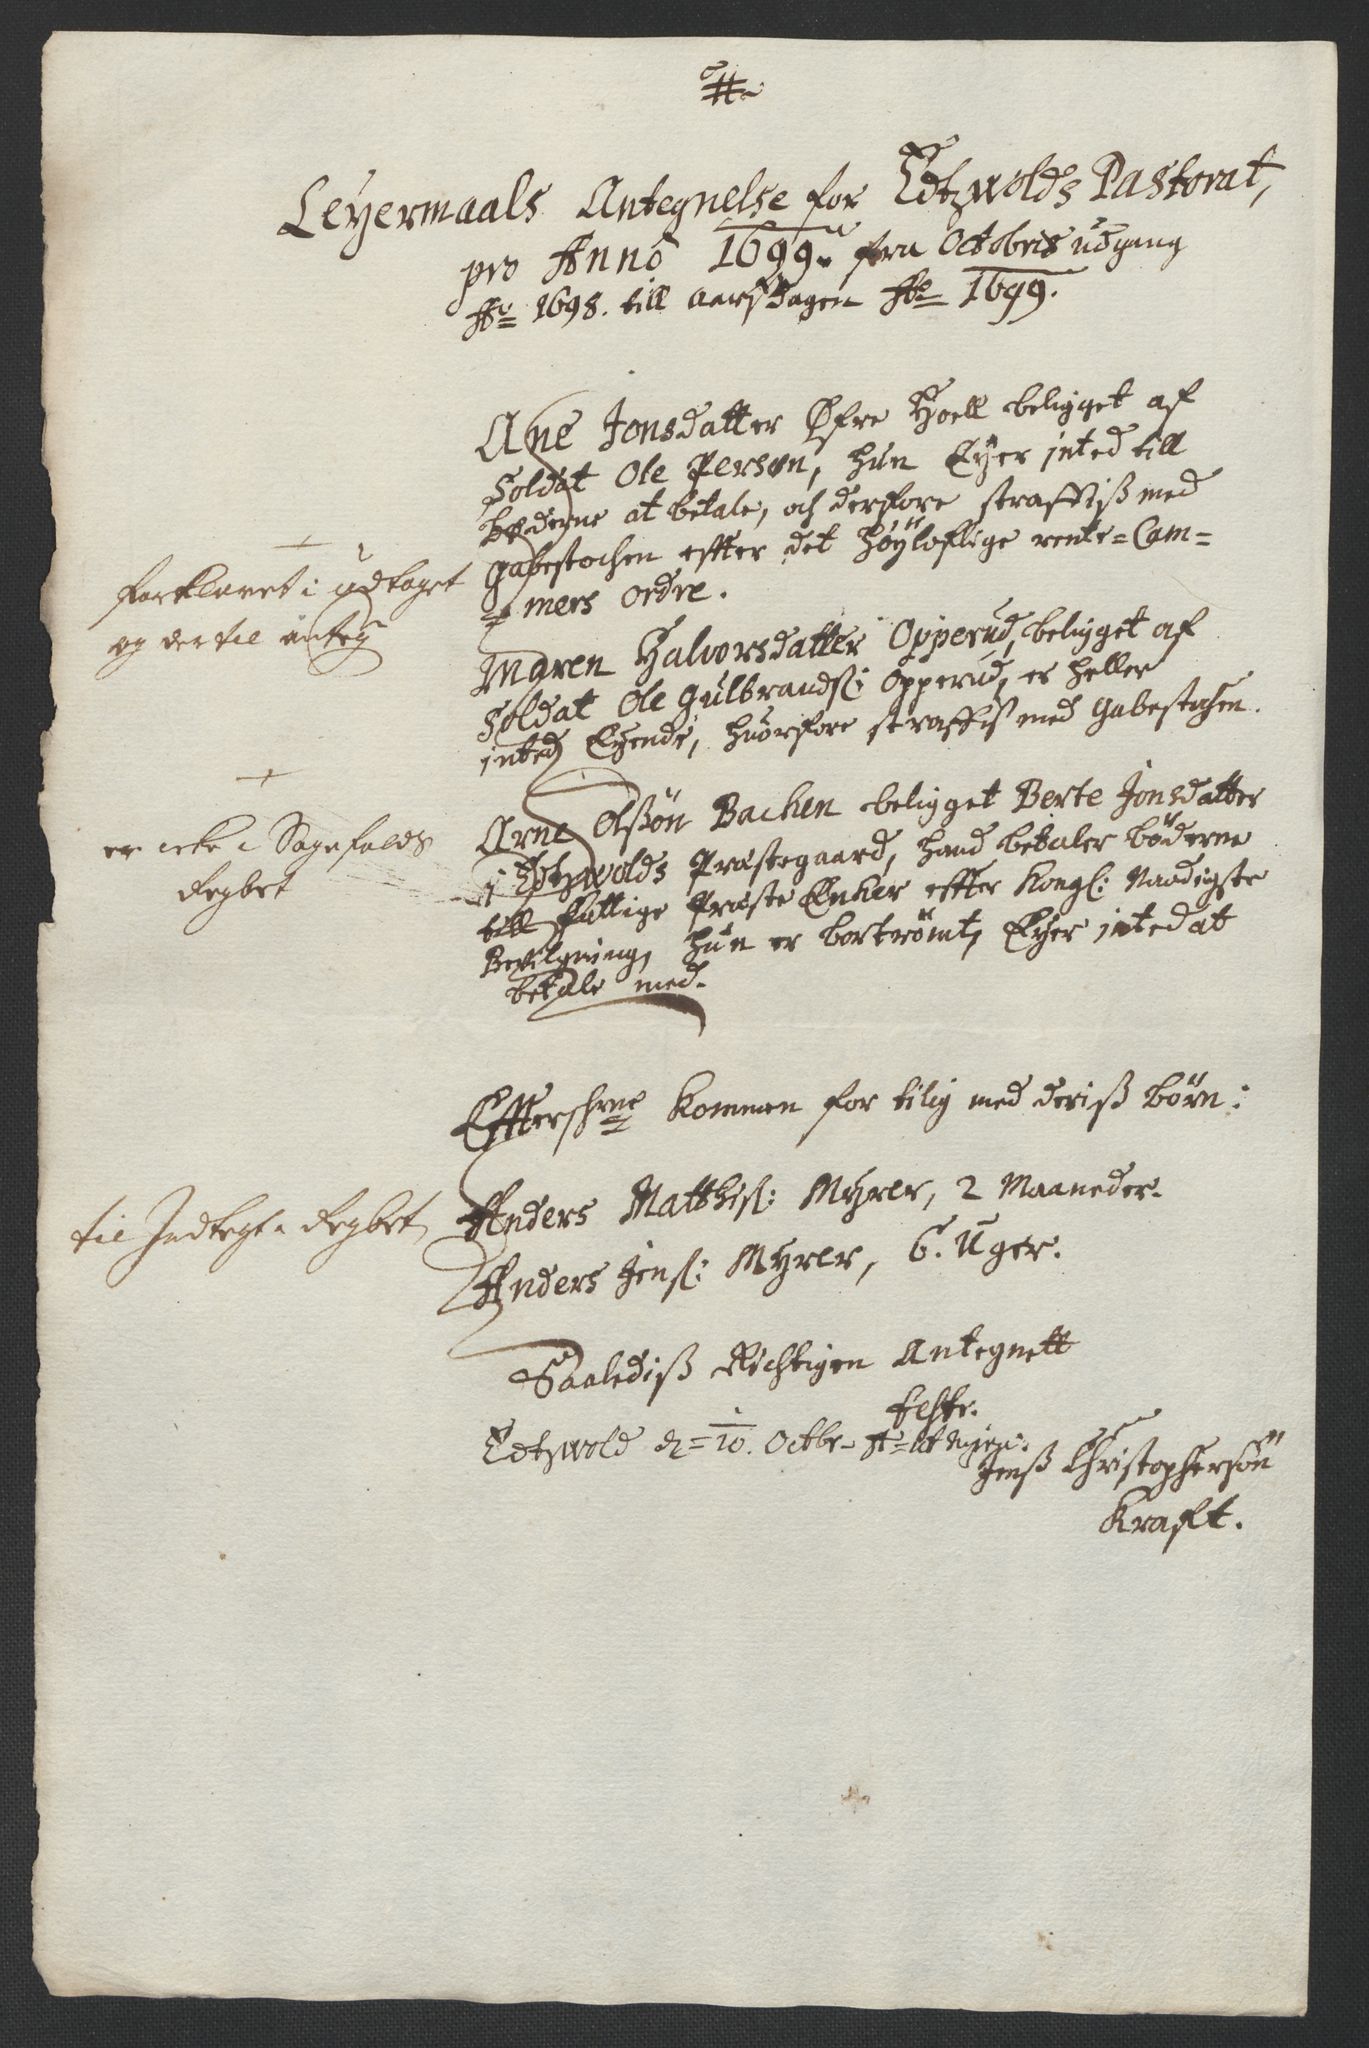 Leyermaals Antegnelse for Edtzwolds Pastorat,
pro Anno 1699. fra Octobris udgang
Ao 1698. till aarsdagen Ao 1699.
Ane Jonsdatter Øfre Hoell beligget af
Soldat Ole Person, hun Eyer inted till
bøderne at betale, och derfore straffiß med
gabestochen effter det høyloflige rente=Cam=
mers Ordre.
forklaret i udtoget
og der til anteg
Maren Halvorsdatter Opperud, beligget af
Soldat Ole Gulbrandsß: Opperud, er heller
inted Eyende, huorfore straffis med Gabestochen.
Arne Olßøn Bachen beligget Berte Jonsdatter
i Edtzwolds Præstegaard, hand betaler bøderne
till fattige Præste Enker effter Kongl: Naadigste
Bevilgning, hun er bortrømt, Eyer inted at
betale med.
er icke i Sagefalds
Regbet
Effterschrne kommen for tilig med deriß børn:
Anders Matthisß: Myrer, 2 Maaneder.
Anders Jensß: Myrer, 6. Uger.
til Indtegt a Regbet
Saalediß Richtigen Antegnett
testr.
Edtzwold d= 10. Octbr Ao
Jenß Christophersøn
Kraft.